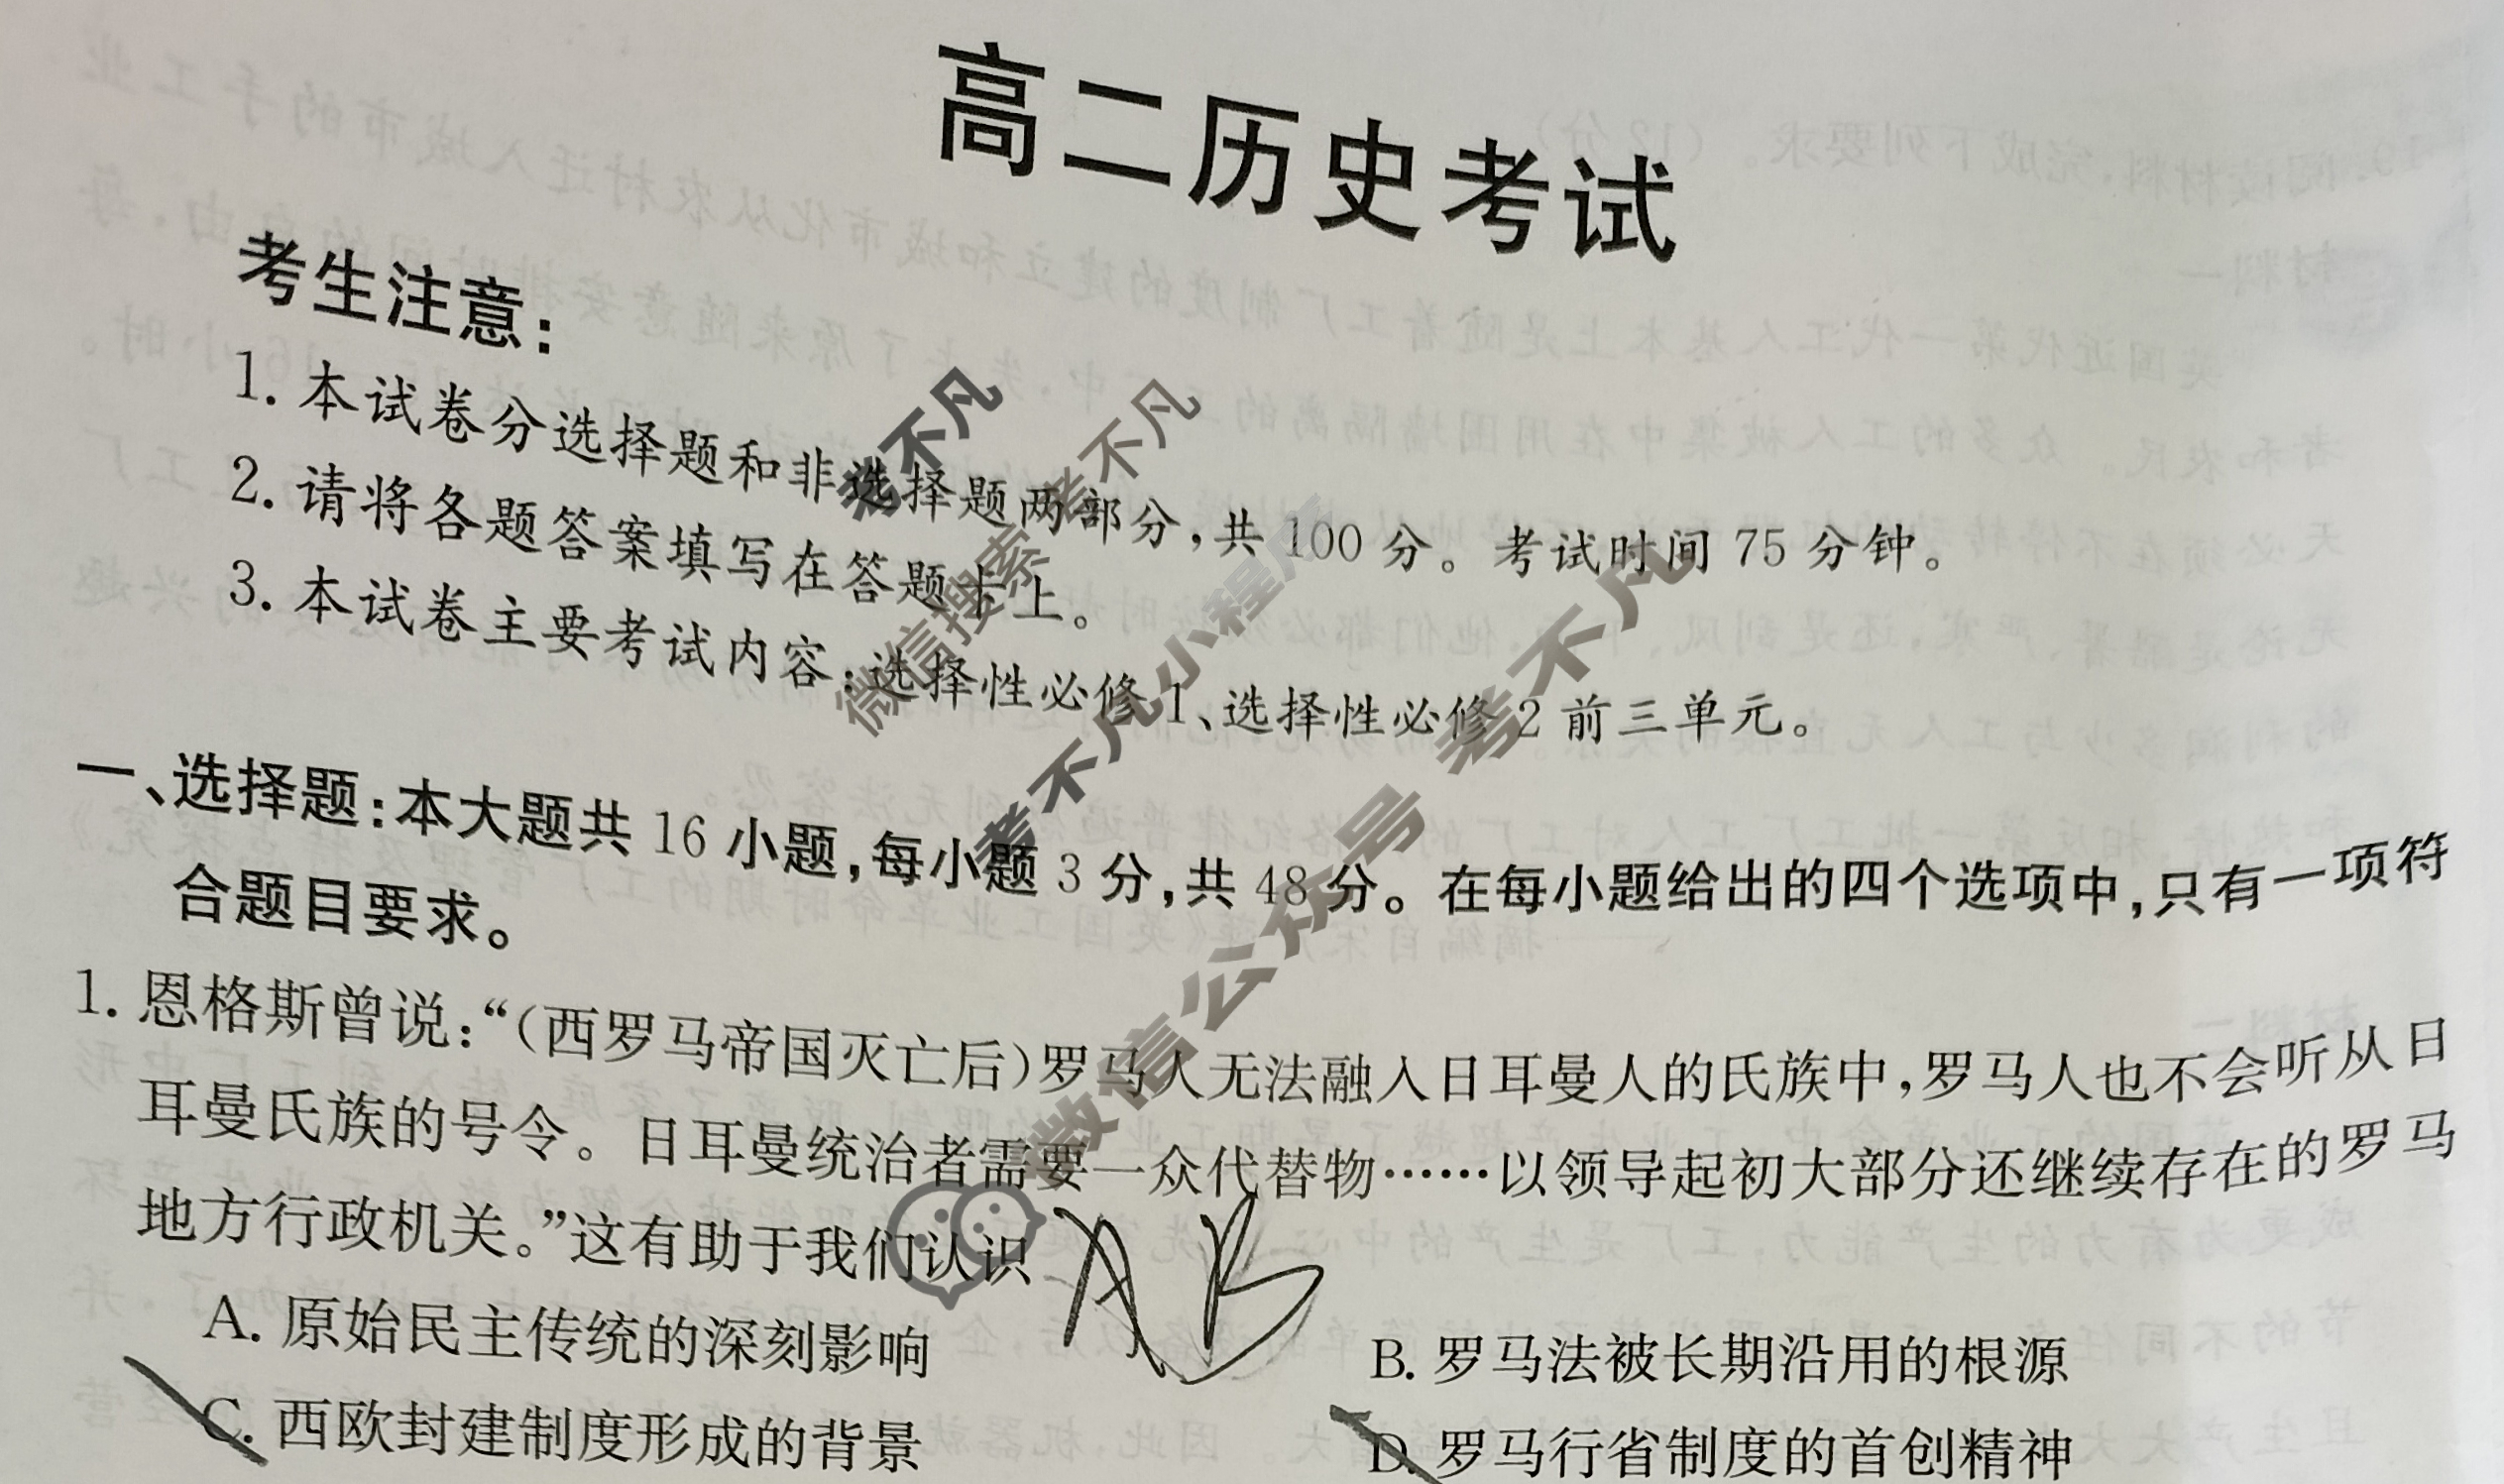 高二历史考试
考生注意：
1. 本试卷分选择题和非选择题两部分，共 100 分。考试时间 75 分钟。
2. 请将各题答案填写在答题卡上。
3. 本试卷主要考试内容：选择性必修 1、选择性必修 2 前三单元。
一、选择题：本大题共 16 小题，每小题 3 分，共 48 分。在每小题给出的四个选项中，只有一项符
合题目要求。
1. 恩格斯曾说：“（西罗马帝国灭亡后）罗马人无法融入日耳曼人的氏族中，罗马人也不会听从日
耳曼氏族的号令。日耳曼统治者需要一众代替物……以领导起初大部分还继续存在的罗马
地方行政机关。”这有助于我们认识
A B
A. 原始民主传统的深刻影响
B. 罗马法被长期沿用的根源
C. 西欧封建制度形成的背景
D. 罗马行省制度的首创精神
考不凡
微信搜索 考不凡
考不凡小程序
微信公众号 考不凡